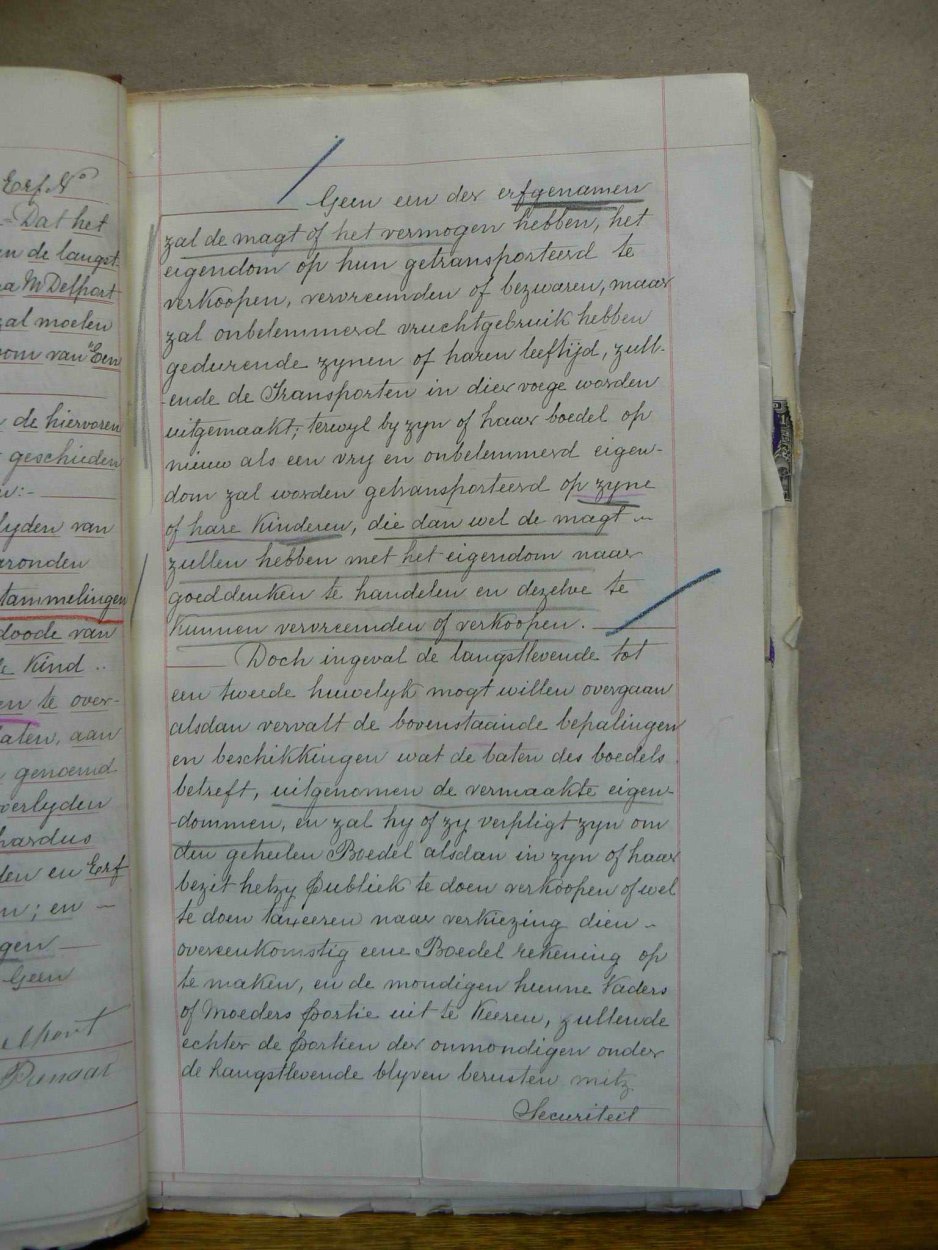 Erf No
- Dat het
en de langst-
na M Delport
zal moeten
som van "Een
de hiervoren
geschieden
en:-
lyden van
aronden
stammelingen
doode van
de Kind ..
en te over-
laten, aan
genoemd
overlyden
hardus
den en Erf
n; en ~
gen
Geen
elport
Pienaar
Geen een der erfgenamen
zal de magt of het vermogen hebben, het
eigendom op hun getransporteerd te
verkoopen, vervreemden of bezwaren, maar
zal onbelemmerd vruchtgebruik hebben
gedurende zynen of haren leeftijd, zull-
ende de Transporten in dier voege worden
uitgemaakt; terwyl by zyn of haar boedel op
nieuw als een vry en onbelemmerd eigen-
dom zal worden getransporteerd op zyne
of hare Kinderen, die dan wel de magt ~
zullen hebben met het eigendom naar
goeddenken te handelen en dezelve te
Kunnen vervreemden of verkoopen.
Doch ingeval de langstlevende tot
een tweede huwelyk mogt willen overgaan
alsdan vervalt de bovenstaande bepalingen
en beschikkingen wat de baten des boedels
betreft, uitgenomen de vermaakte eigen-
-dommen, en zal hy of zy verpligt zyn om
den geheelen Boedel alsdan in zyn of haar
bezit hetzy publiek te doen verkoopen of wel
te doen taxeeren naar verkiezing dien ~
overeenkomstig eene Boedel rekening op
te maken, en de mondigen hunne Vaders
of Moeders portie uit te Keeren, zullende
echter de portien der onmondigen onder
de langstlevende blyven berusten mitz
Securiteit